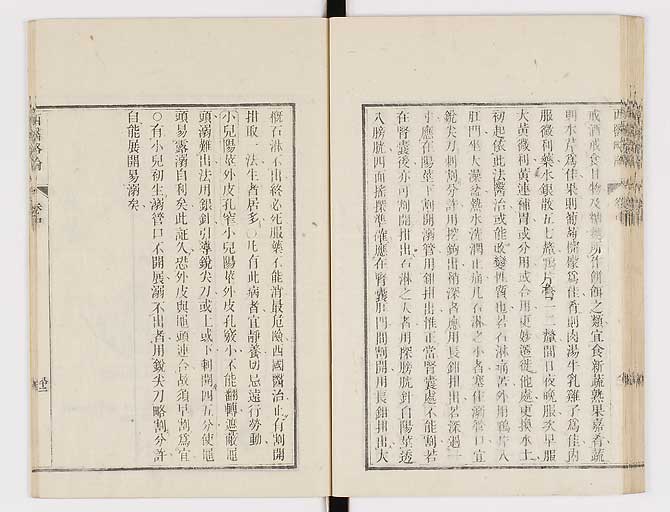 戒酒戒食甘物及糖糵所作餅餌之類宜食新蔬熟果嘉肴蔬
則水芹爲佳果則葡萄橄欖爲佳肴則肉湯牛乳雞子爲佳內
服微利藥水銀散五七釐鴉片膏一二釐間日夜晚服次早服
大黃微利黃連補胃或分用或合用更妙遷徙他處更換水土
初起依此法醫治或能改變性質也若石淋痛苦外用鴉片入
肛門坐大澡盆熱水洗潤止痛凡石淋之小者塞住溺管口宜
銳尖刀刺割分許用挖鉤出稍深者應用長鉗拑出若深過一
寸應在陽莖下割開溺管用鉗拑出惟正當腎囊處不能割若
在腎囊後亦可割開拑出石淋之大者用探膀胱針自陽莖透
入膀胱四面搖探準確應在腎囊肛門間割開用長鉗拑出大
概石淋不出終必死服藥不能消最危險西國醫治止有割開
拑取一法生者居多○凡有此病者宜靜養切忌遠行勞動
小兒陽莖外皮孔窄小兒陽莖外皮孔竅小不能翻轉遮蔽龜
頭溺難出法用銀針引導銳尖刀或上或下刺開四五分使龜
頭易露溺自利矣此証久恐外皮與龜頭連合故須早割爲宜
○有小兒初生溺管口不開展溺不出者用銳尖刀略割分許
自能展開易溺矣
西醫略論
卷中